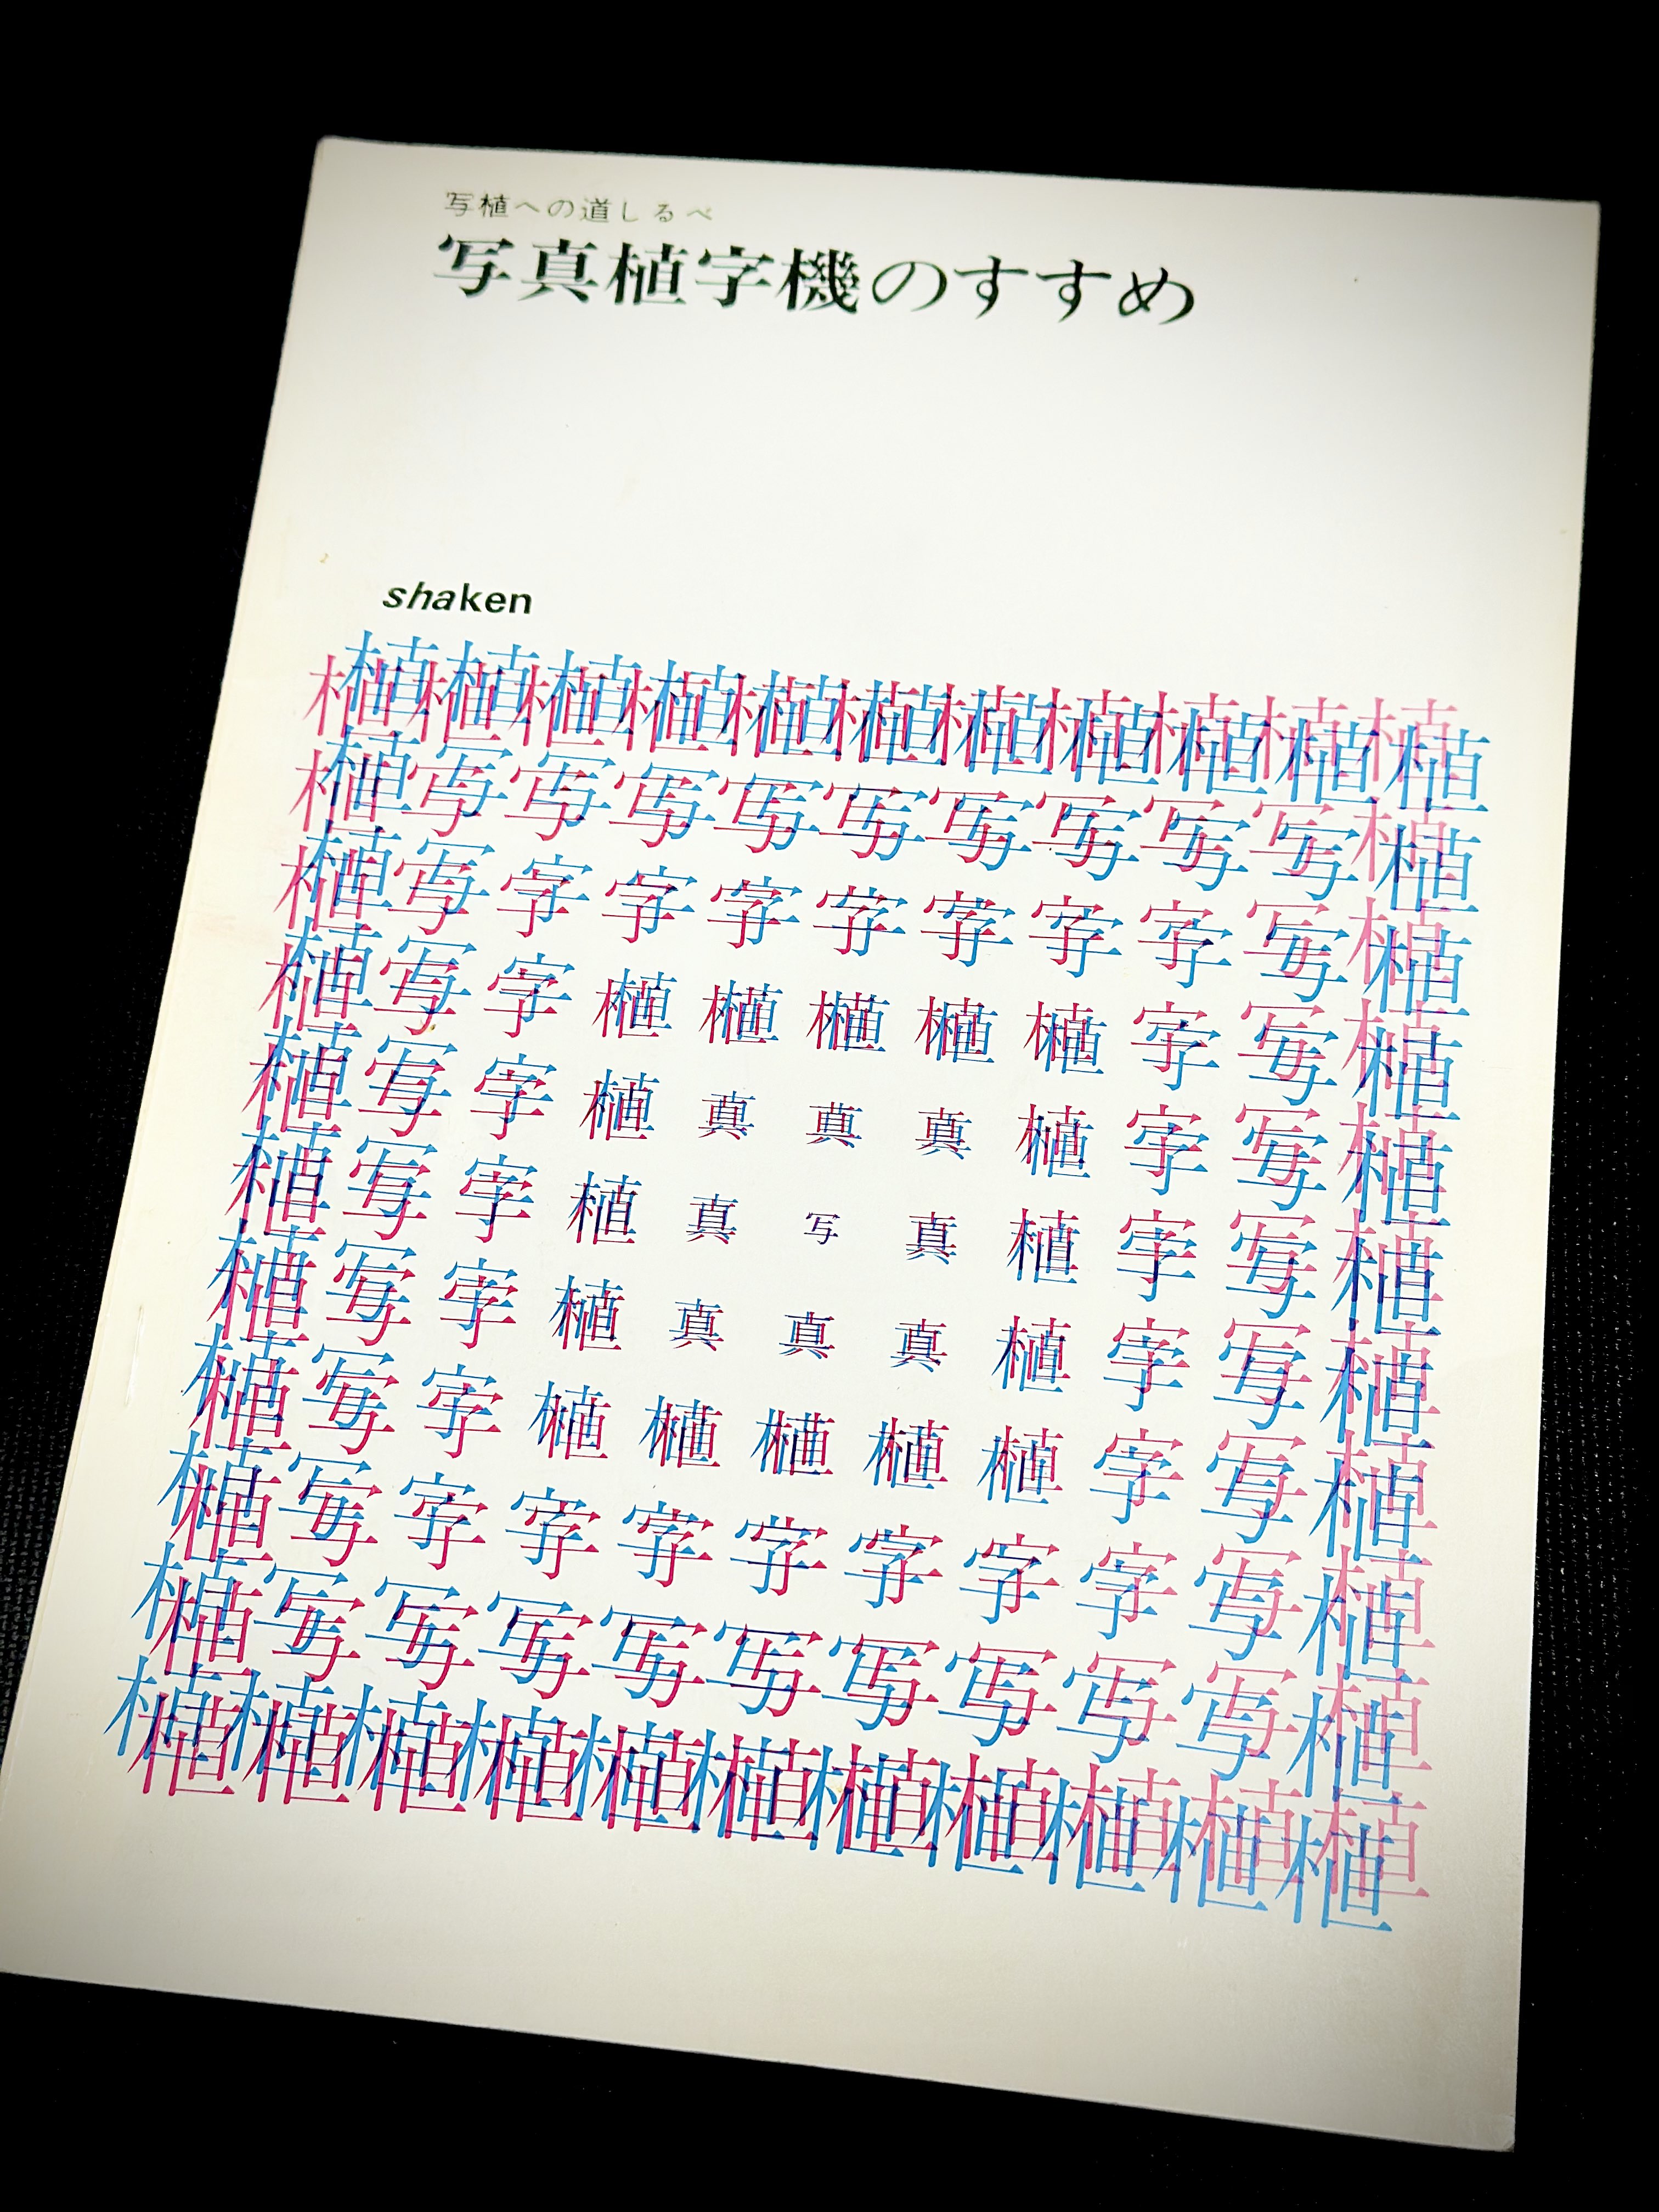 写植への道しるべ
写真植字機のすすめ
shaken
植植植植植植植植植植植
植写写写写写写写写写植
植写字字字字字字字写植
植写字植植植植植字写植
植写字植真真真植字写植
植写字植真写真植字写植
植写字植真真真植字写植
植写字植植植植植字写植
植写字字字字字字字写植
植写写写写写写写写写植
植植植植植植植植植植植